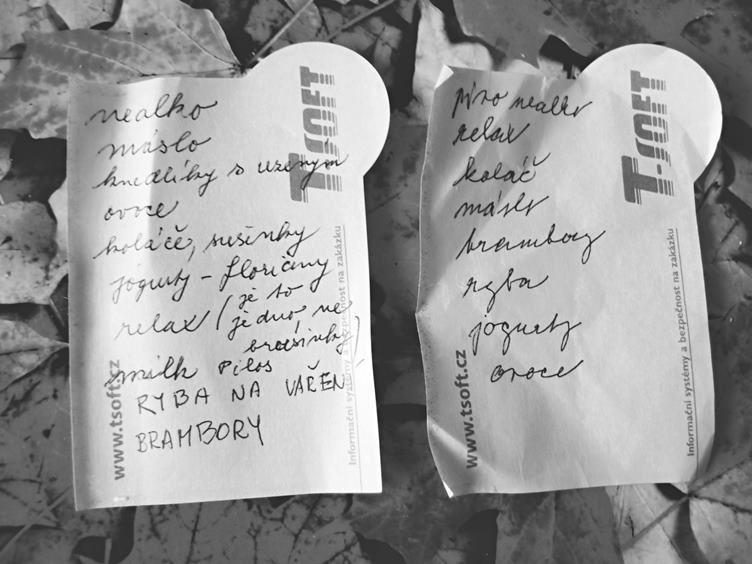 nealko
máslo
knedlíky s uzeným
ovoce
koláče, sušinky
jogurty - floriány
relax (je to
jedno ne
brusinky)
milk Pilos
RYBA NA VAŘEN
BRAMBORY
T-SOFT
www.tsoft.cz
Informační systémy a bezpečnost na zakázku
pivo nealko
relax
koláč
máslo
brambory
ryba
jogurty
ovoce
T-SOFT
www.tsoft.cz
Informační systémy a bezpečnost na zakázku